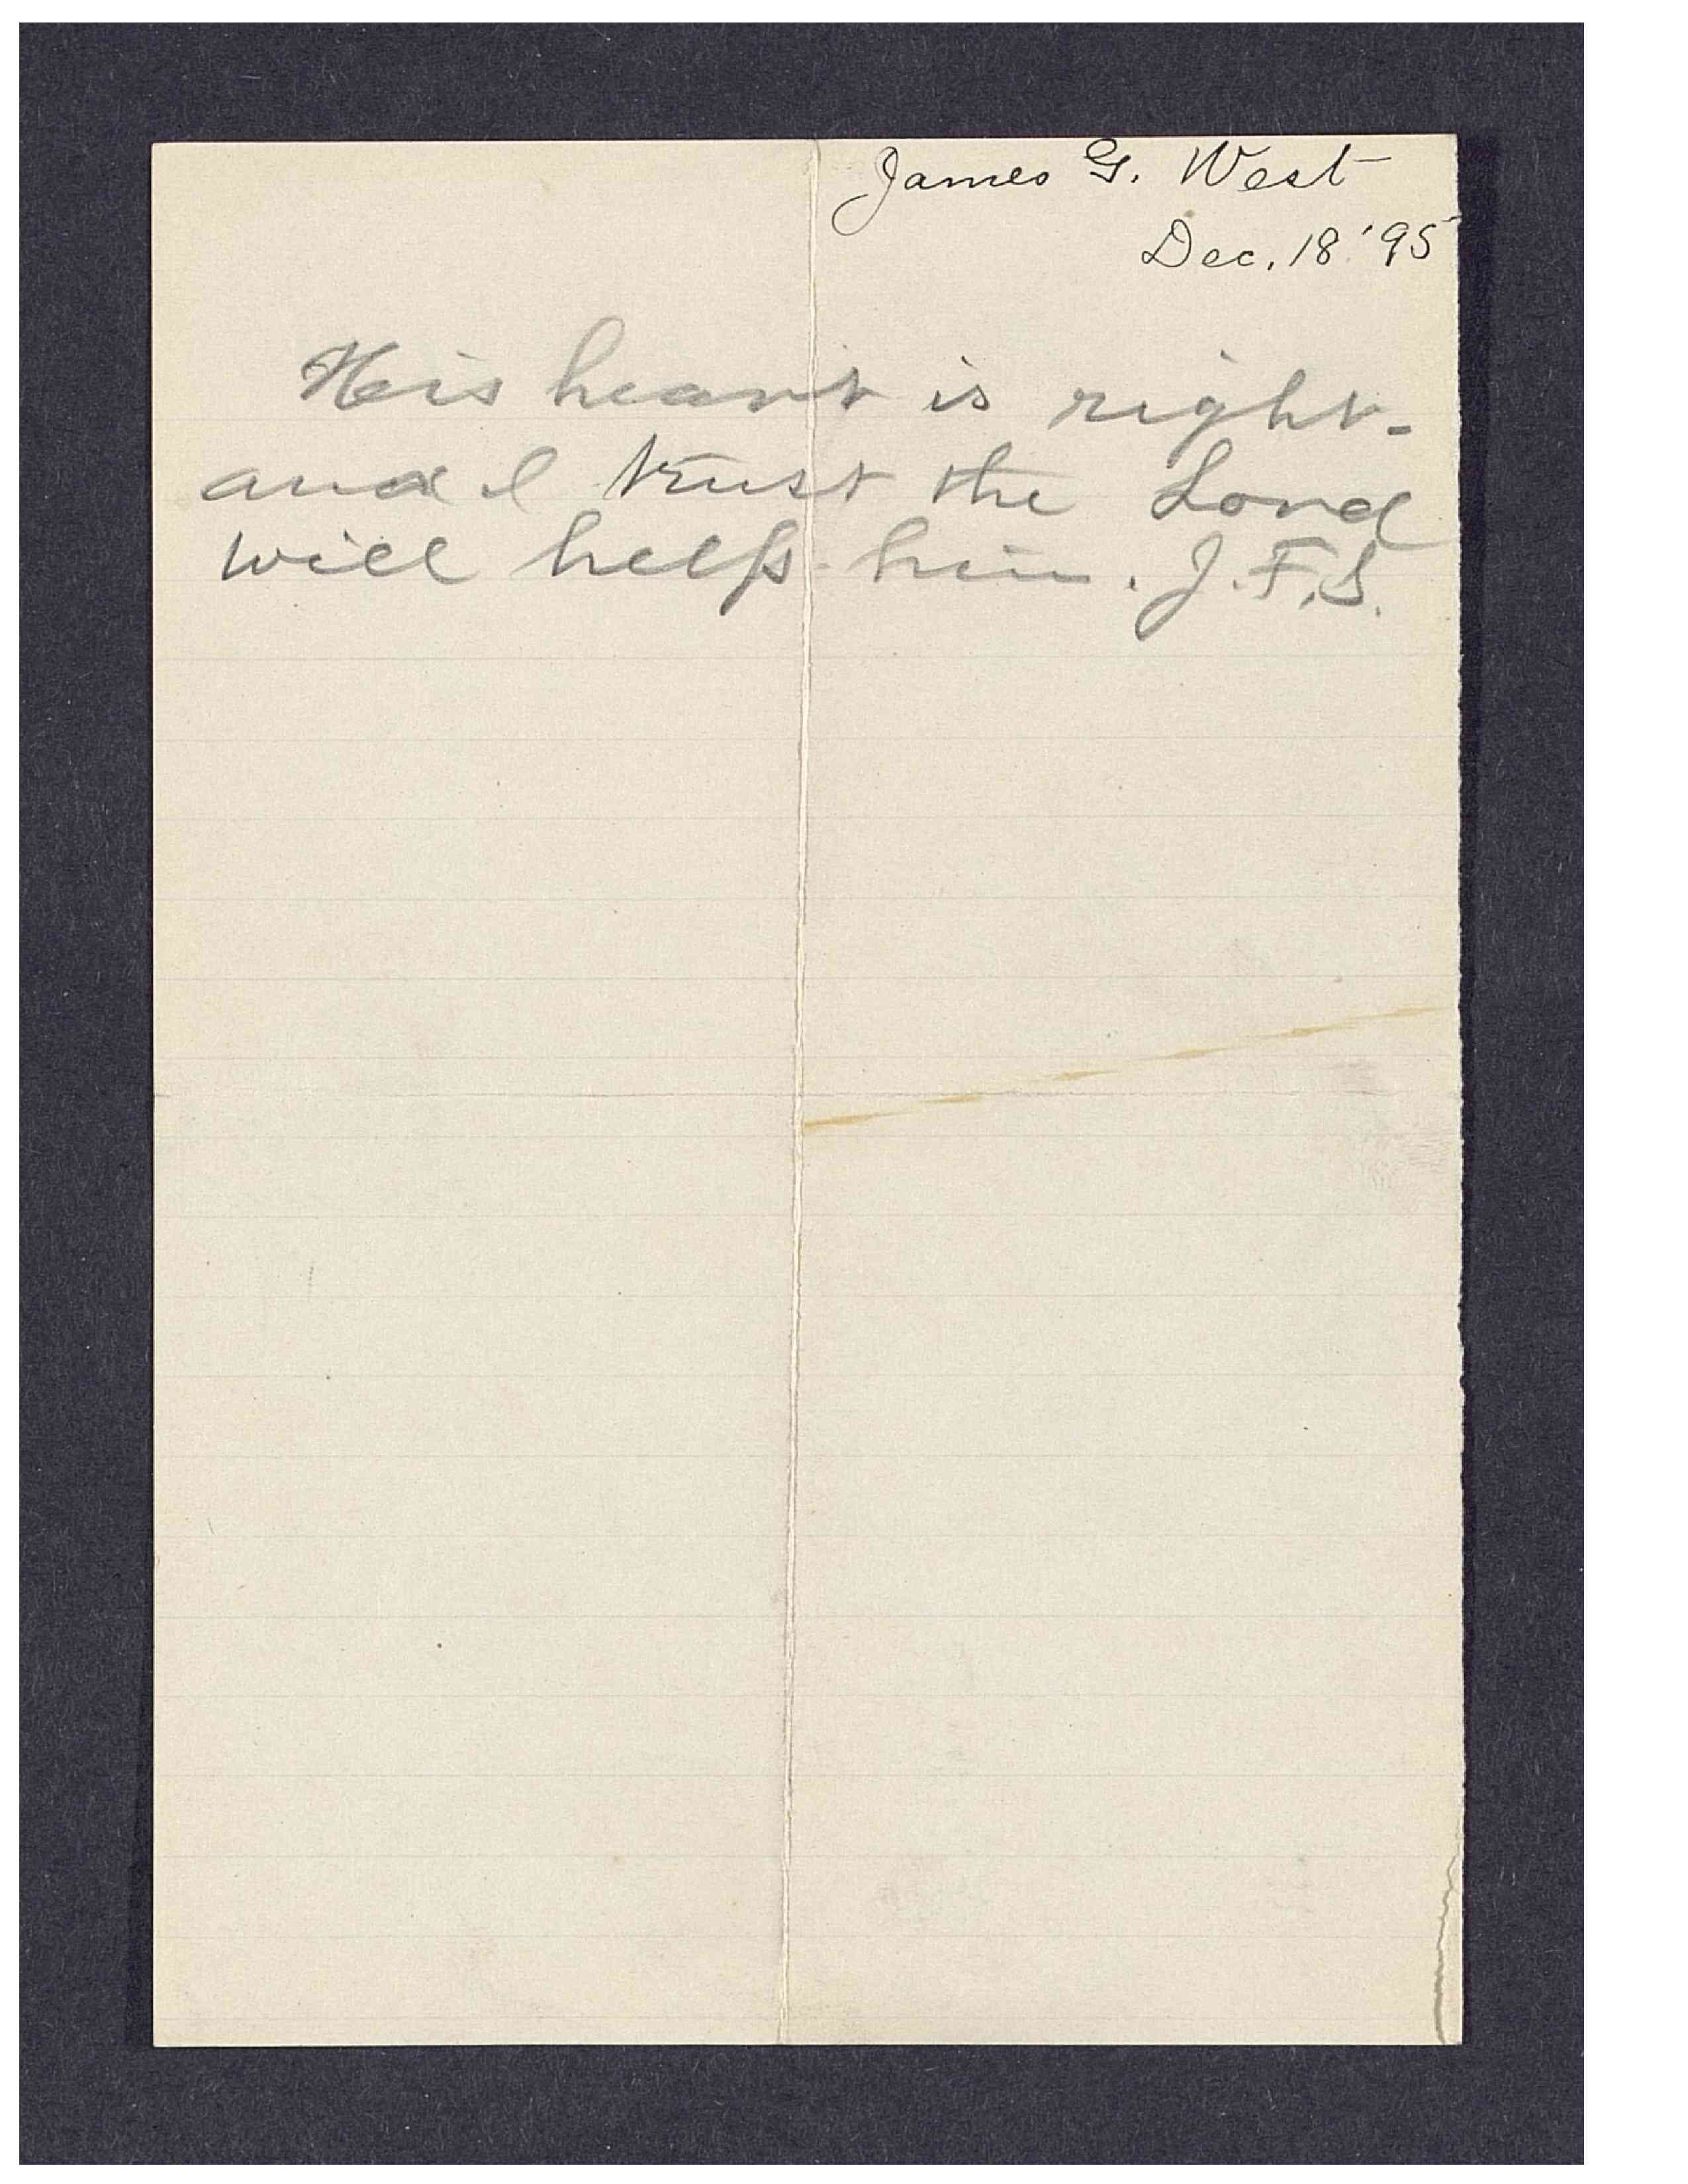 James G. West
Dec. 18 '95
His heart is right-
and I trust the Lord
will help him. J.F.S.